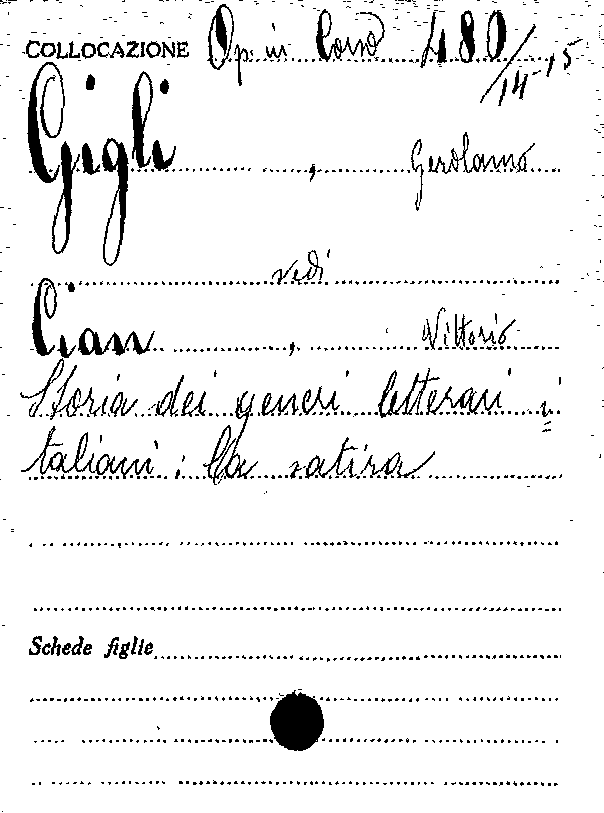 COLLOCAZIONE Op. in Corso 480/14-15
Gigli, Gerolamo
vedi
Cian, Vittorio
Storia dei generi letterari i=
taliani: La satira
Schede figlie